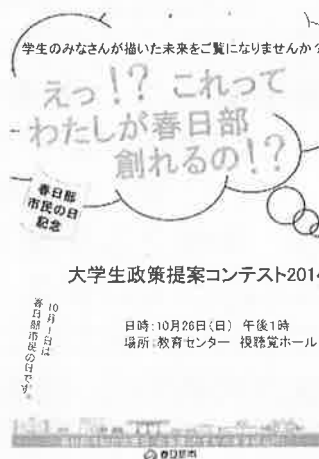 学生のみなさんが描いた未来をご覧になりませんか？
えっ！？これって
わたしが春日部
創れるの！？
春日部
市民の日
記念
大学生政策提案コンテスト2014
10月1日は
春日部市民の日です。
日時：10月26日（日） 午後1時
場所：教育センター 視聴覚ホール
春日部市